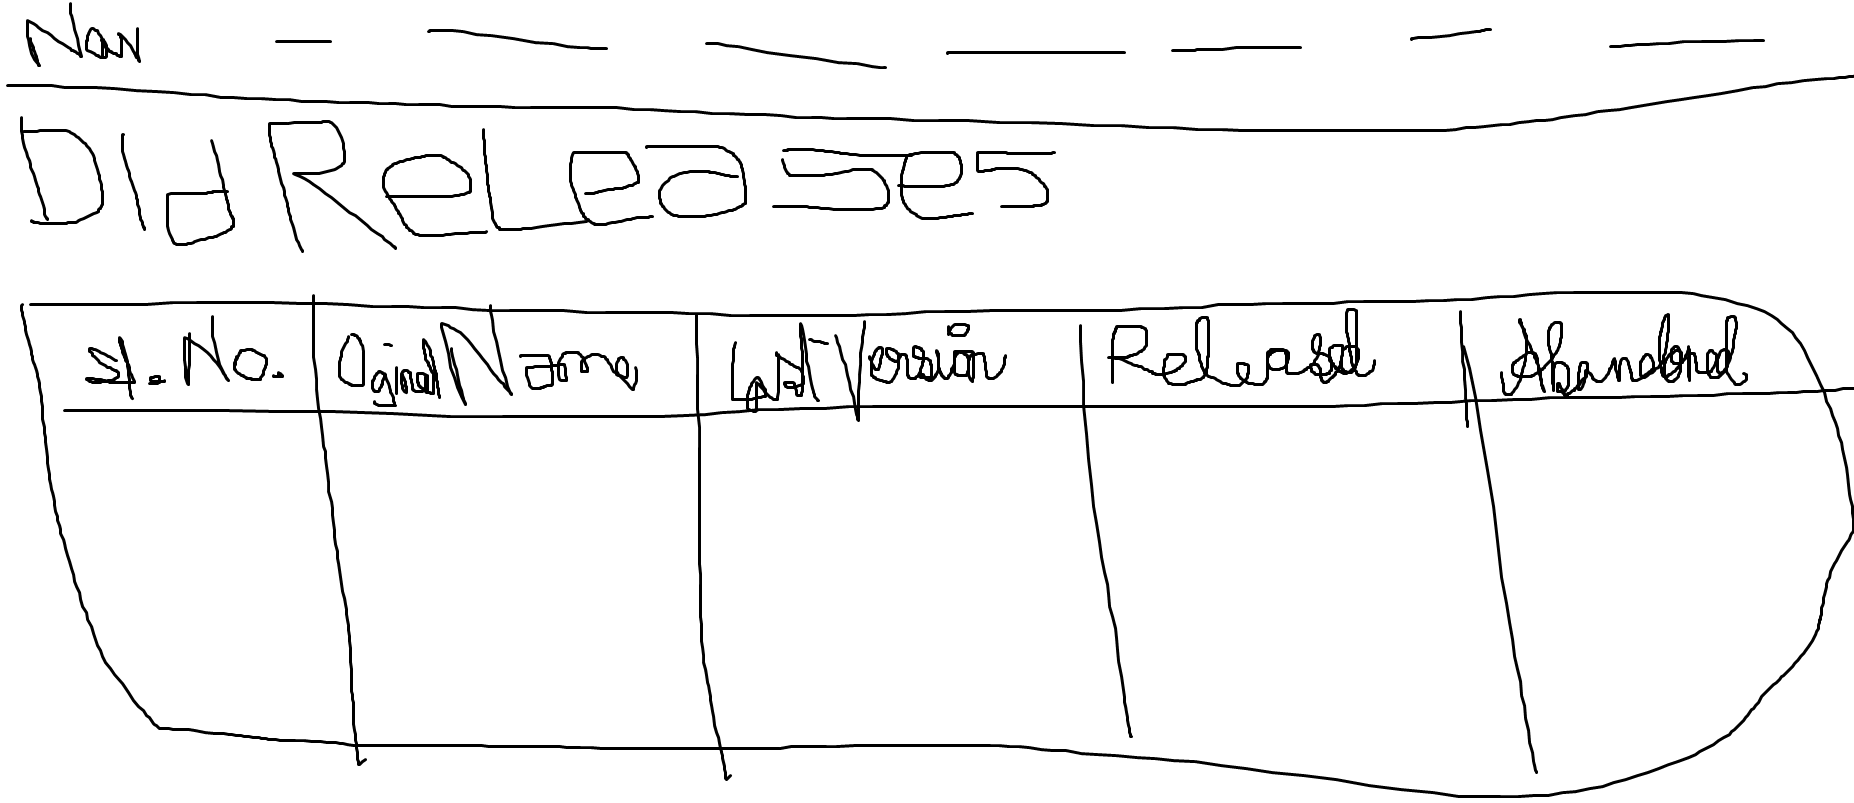 Nav
Old Releases
Sl. No. Original Name Last Version Released Abandoned